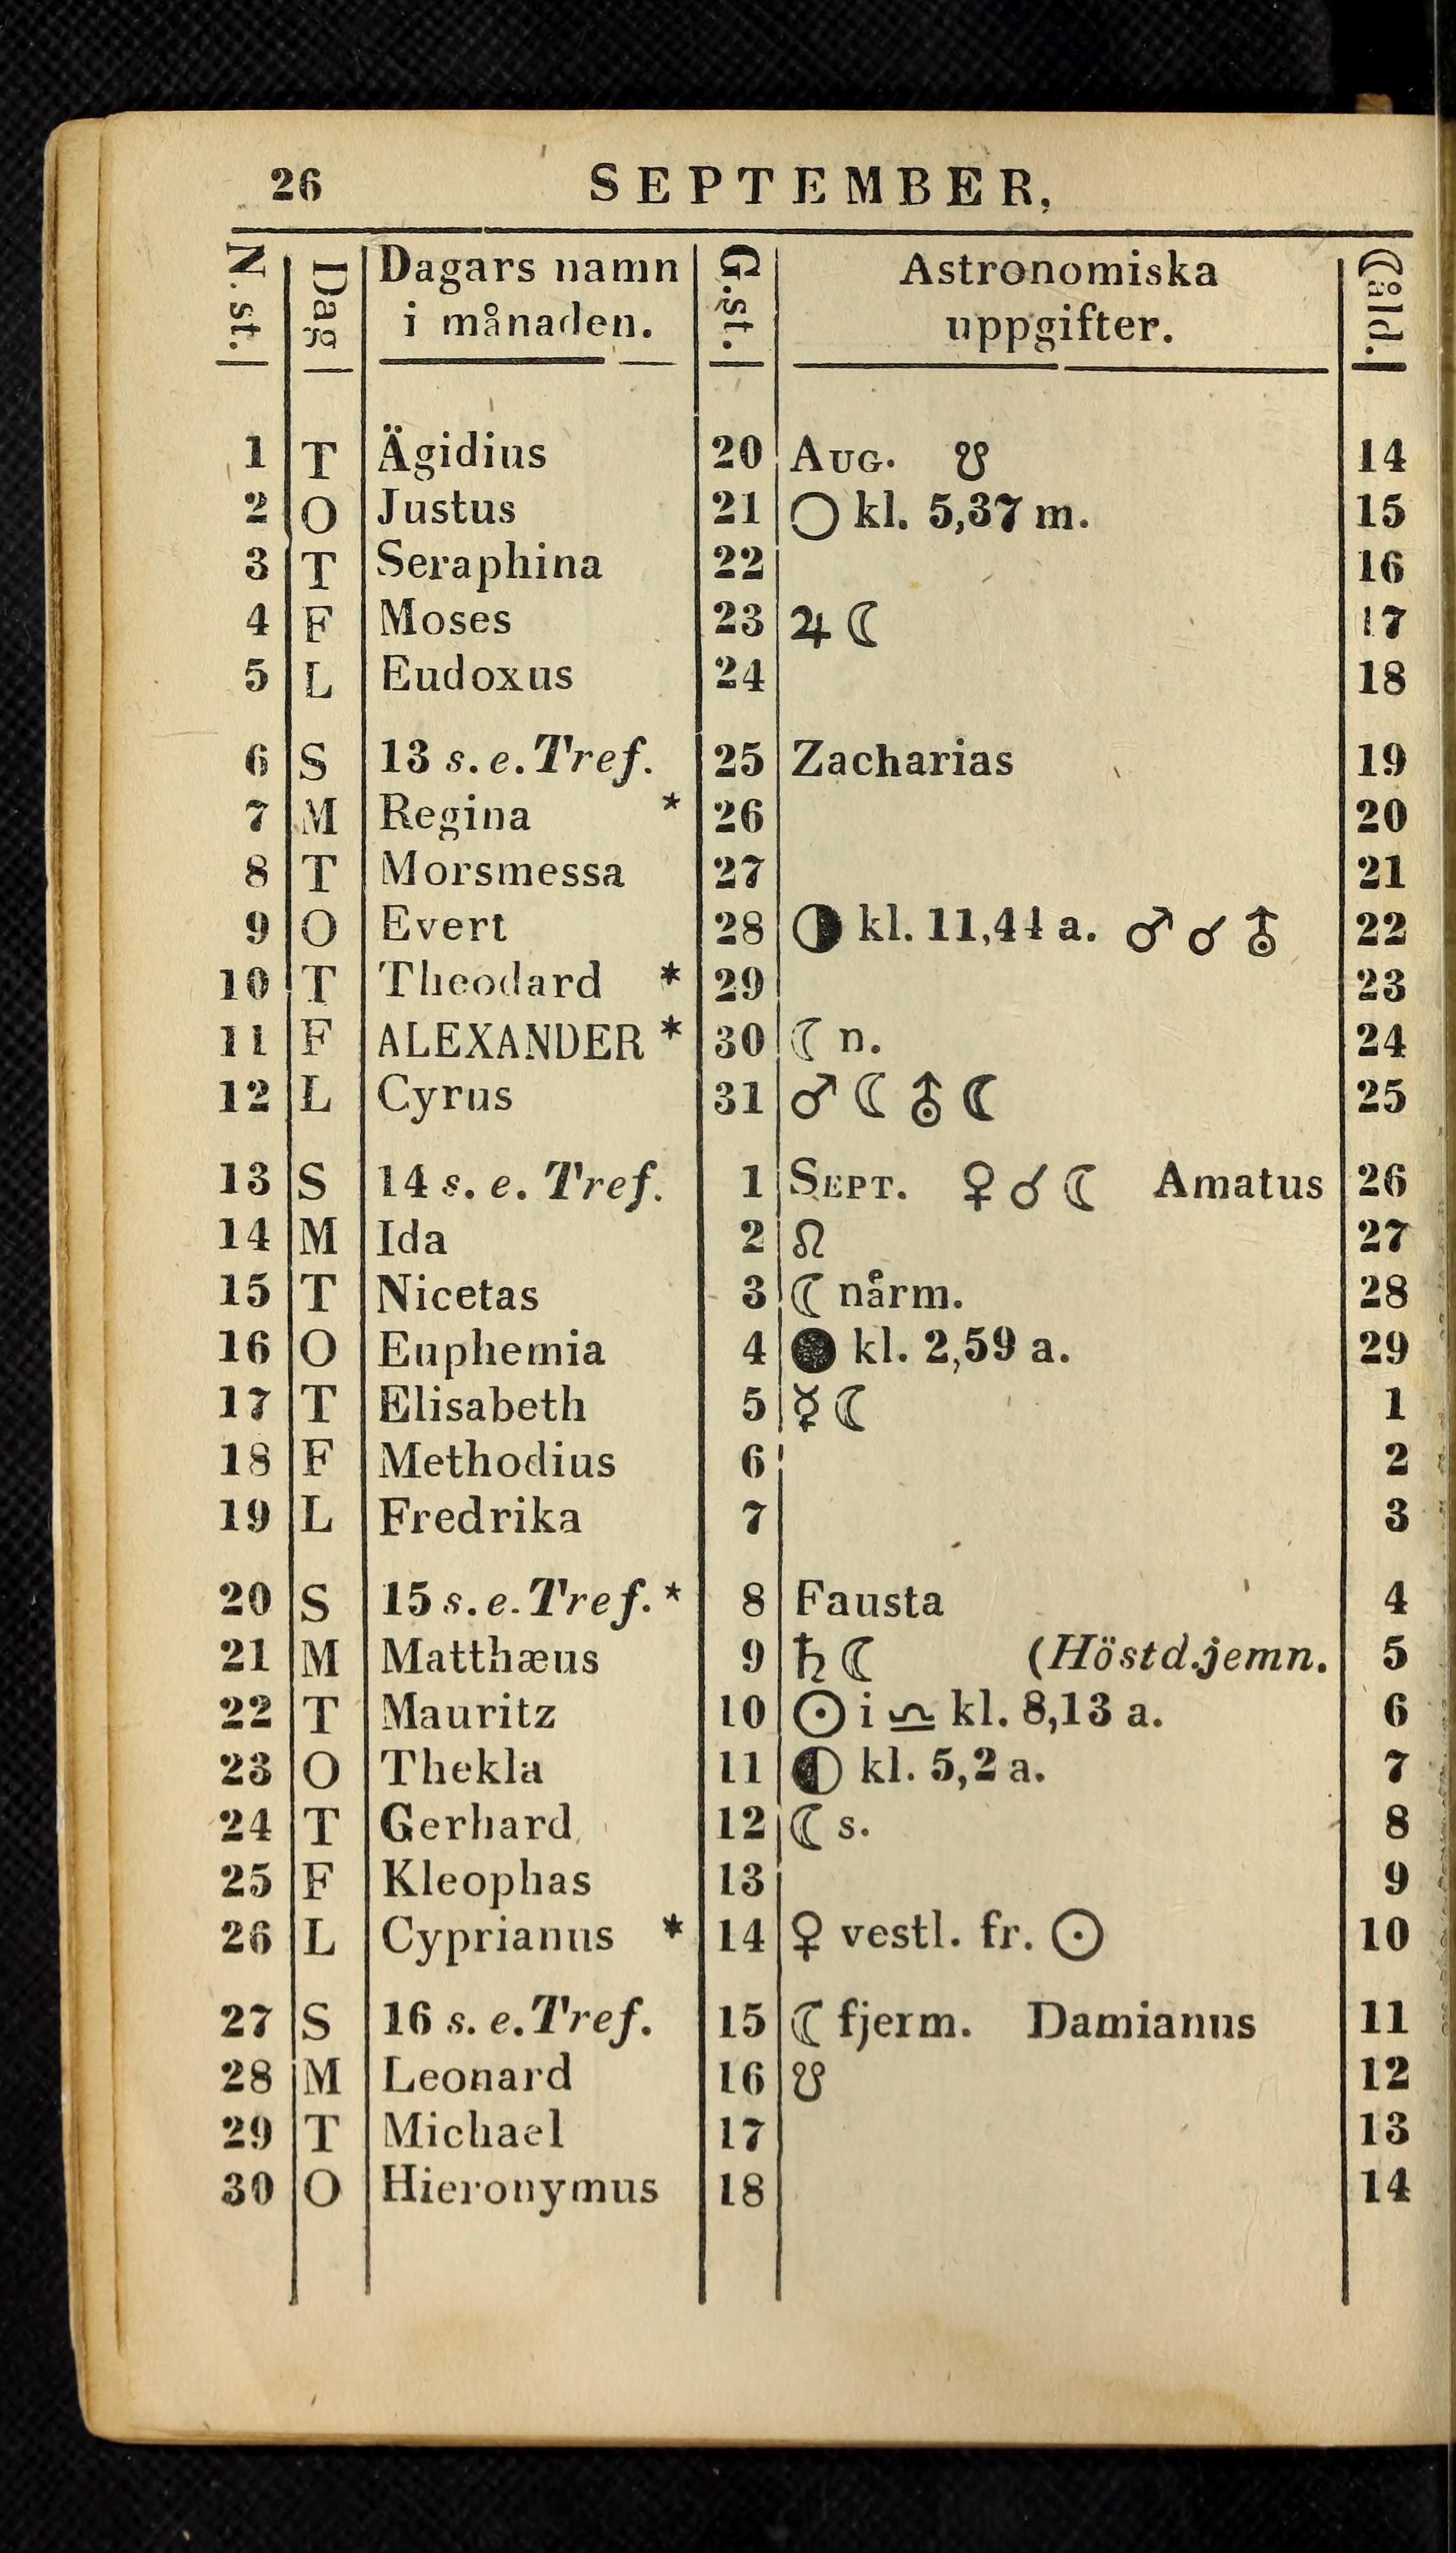 26 SEPTEMBER,
N. st. Dag Dagars namn i månaden. G. st. Astronomiska uppgifter. ☾åld.
1 T Ägidius 20 AUG. ☋ 14
2 O Justus 21 ○ kl. 5,37 m. 15
3 T Seraphina 22 16
4 F Moses 23 ♃ ☾ 17
5 L Eudoxus 24 18
6 S 13 s. e. Tref. 25 Zacharias 19
7 M Regina * 26 20
8 T Morsmessa 27 21
9 O Evert 28 ◑ kl. 11,44 a. ♂ ☌ ⛢ 22
10 T Theodard * 29 23
11 F ALEXANDER * 30 ☾ n. 24
12 L Cyrus 31 ♂ ☾ ⛢ ☾ 25
13 S 14 s. e. Tref. 1 SEPT. ♀ ☌ ☾ Amatus 26
14 M Ida 2 ☊ 27
15 T Nicetas 3 ☾ närm. 28
16 O Euphemia 4 ● kl. 2,59 a. 29
17 T Elisabeth 5 ☿ ☾ 1
18 F Methodius 6 2
19 L Fredrika 7 3
20 S 15 s. e. Tref. * 8 Fausta 4
21 M Matthæus 9 ♄ ☾ (Höstd.jemn. 5
22 T Mauritz 10 ☉ i ♎ kl. 8,13 a. 6
23 O Thekla 11 ◐ kl. 5,2 a. 7
24 T Gerhard 12 ☾ s. 8
25 F Kleophas 13 9
26 L Cyprianus * 14 ♀ vestl. fr. ☉ 10
27 S 16 s. e. Tref. 15 ☾ fjerm. Damianus 11
28 M Leonard 16 ☋ 12
29 T Michael 17 13
30 O Hieronymus 18 14